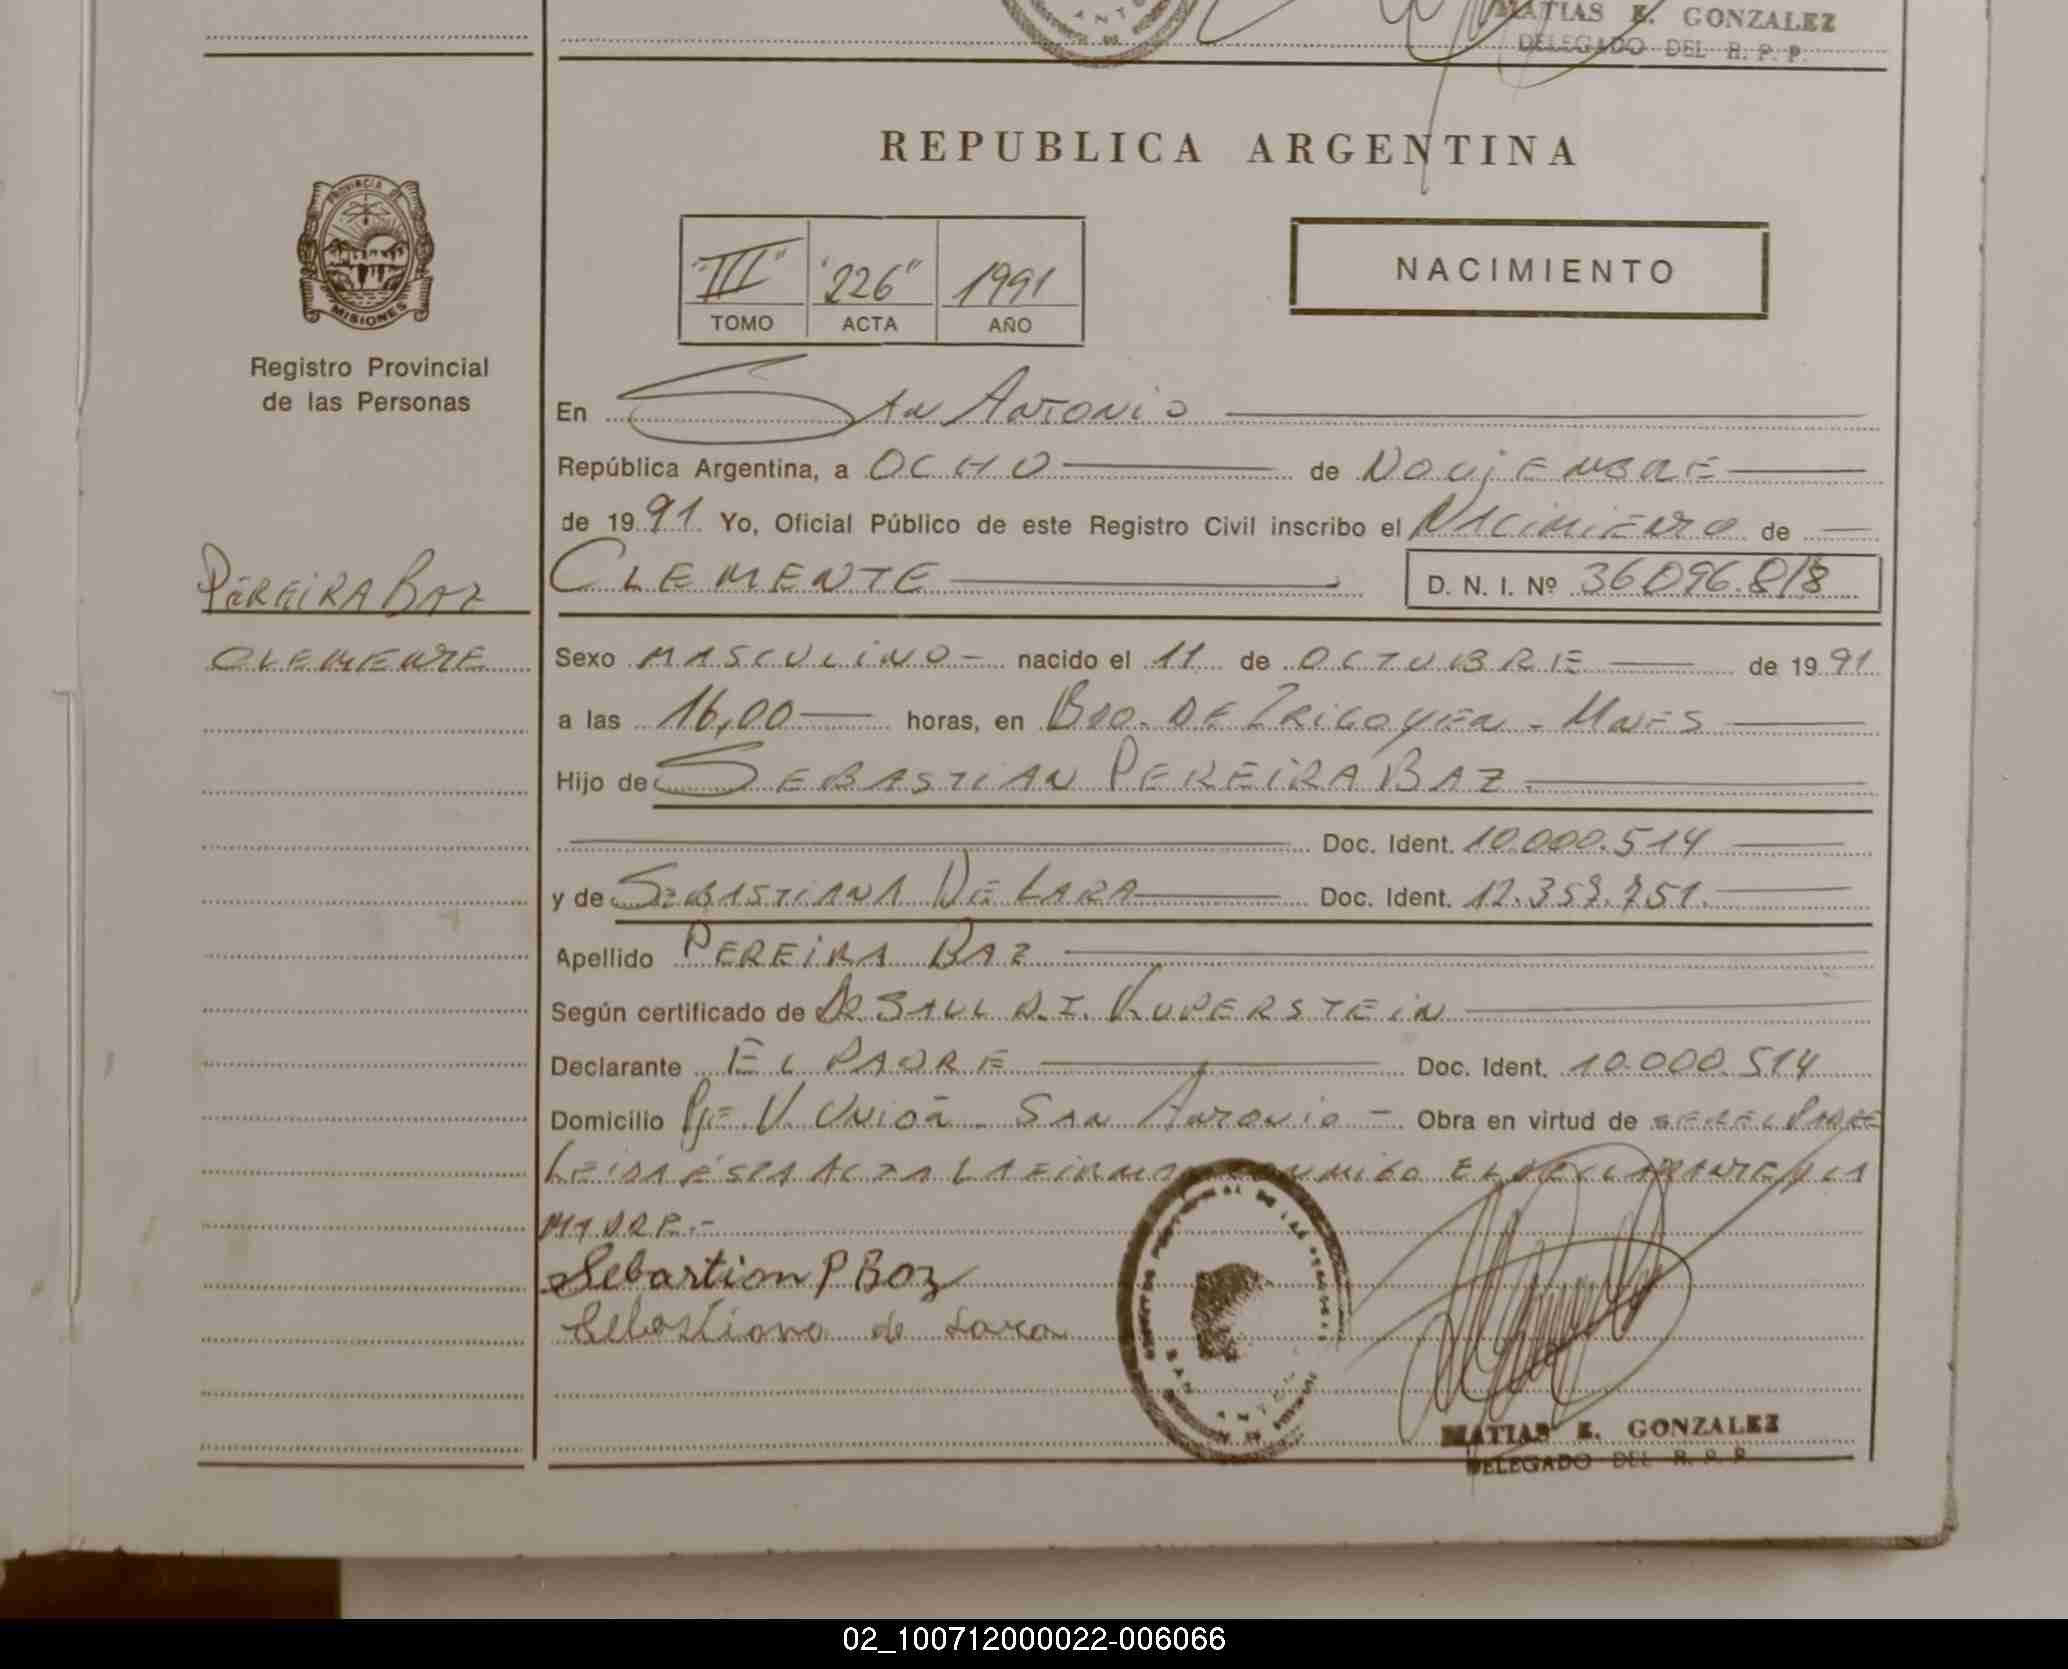 MATIAS E. GONZALEZ
DELEGADO DEL R. P. P.
REPUBLICA ARGENTINA
PROVINCIA DE
MISIONES
"III" "226" 1991
TOMO ACTA AÑO
NACIMIENTO
Registro Provincial
de las Personas
En SAN ANTONIO
República Argentina, a OCHO de NOVIEMBRE
de 1991 Yo, Oficial Público de este Registro Civil inscribo el NACIMIENTO de
CLEMENTE D. N. I. Nº 36096.818
PEREIRA BAZ
CLEMENTE
Sexo MASCULINO - nacido el 11 de OCTUBRE de 1991
a las 16,00 horas, en BDO. DE IRIGOYEN - MNES
Hijo de SEBASTIAN PEREIRA BAZ
Doc. Ident. 10.000.514
y de SEBASTIANA DE LARA Doc. Ident. 12.357.751.
Apellido PEREIRA BAZ
Según certificado de DR SAUL R.I. KUPERSTEIN
Declarante EL PADRE Doc. Ident. 10.000.514
Domicilio Pje V. UNIOÑ - SAN ANTONIO - Obra en virtud de SER EL PADRE
LEIDA ESTA ACTA LA FIRMAN CONMIGO EL DECLARANTE Y LA
MADRE.-
Sebastian P Baz
Sebastiana de Lara
SAN ANTONIO
MATIAS E. GONZALEZ
DELEGADO DEL R. P. P.
02_100712000022-006066